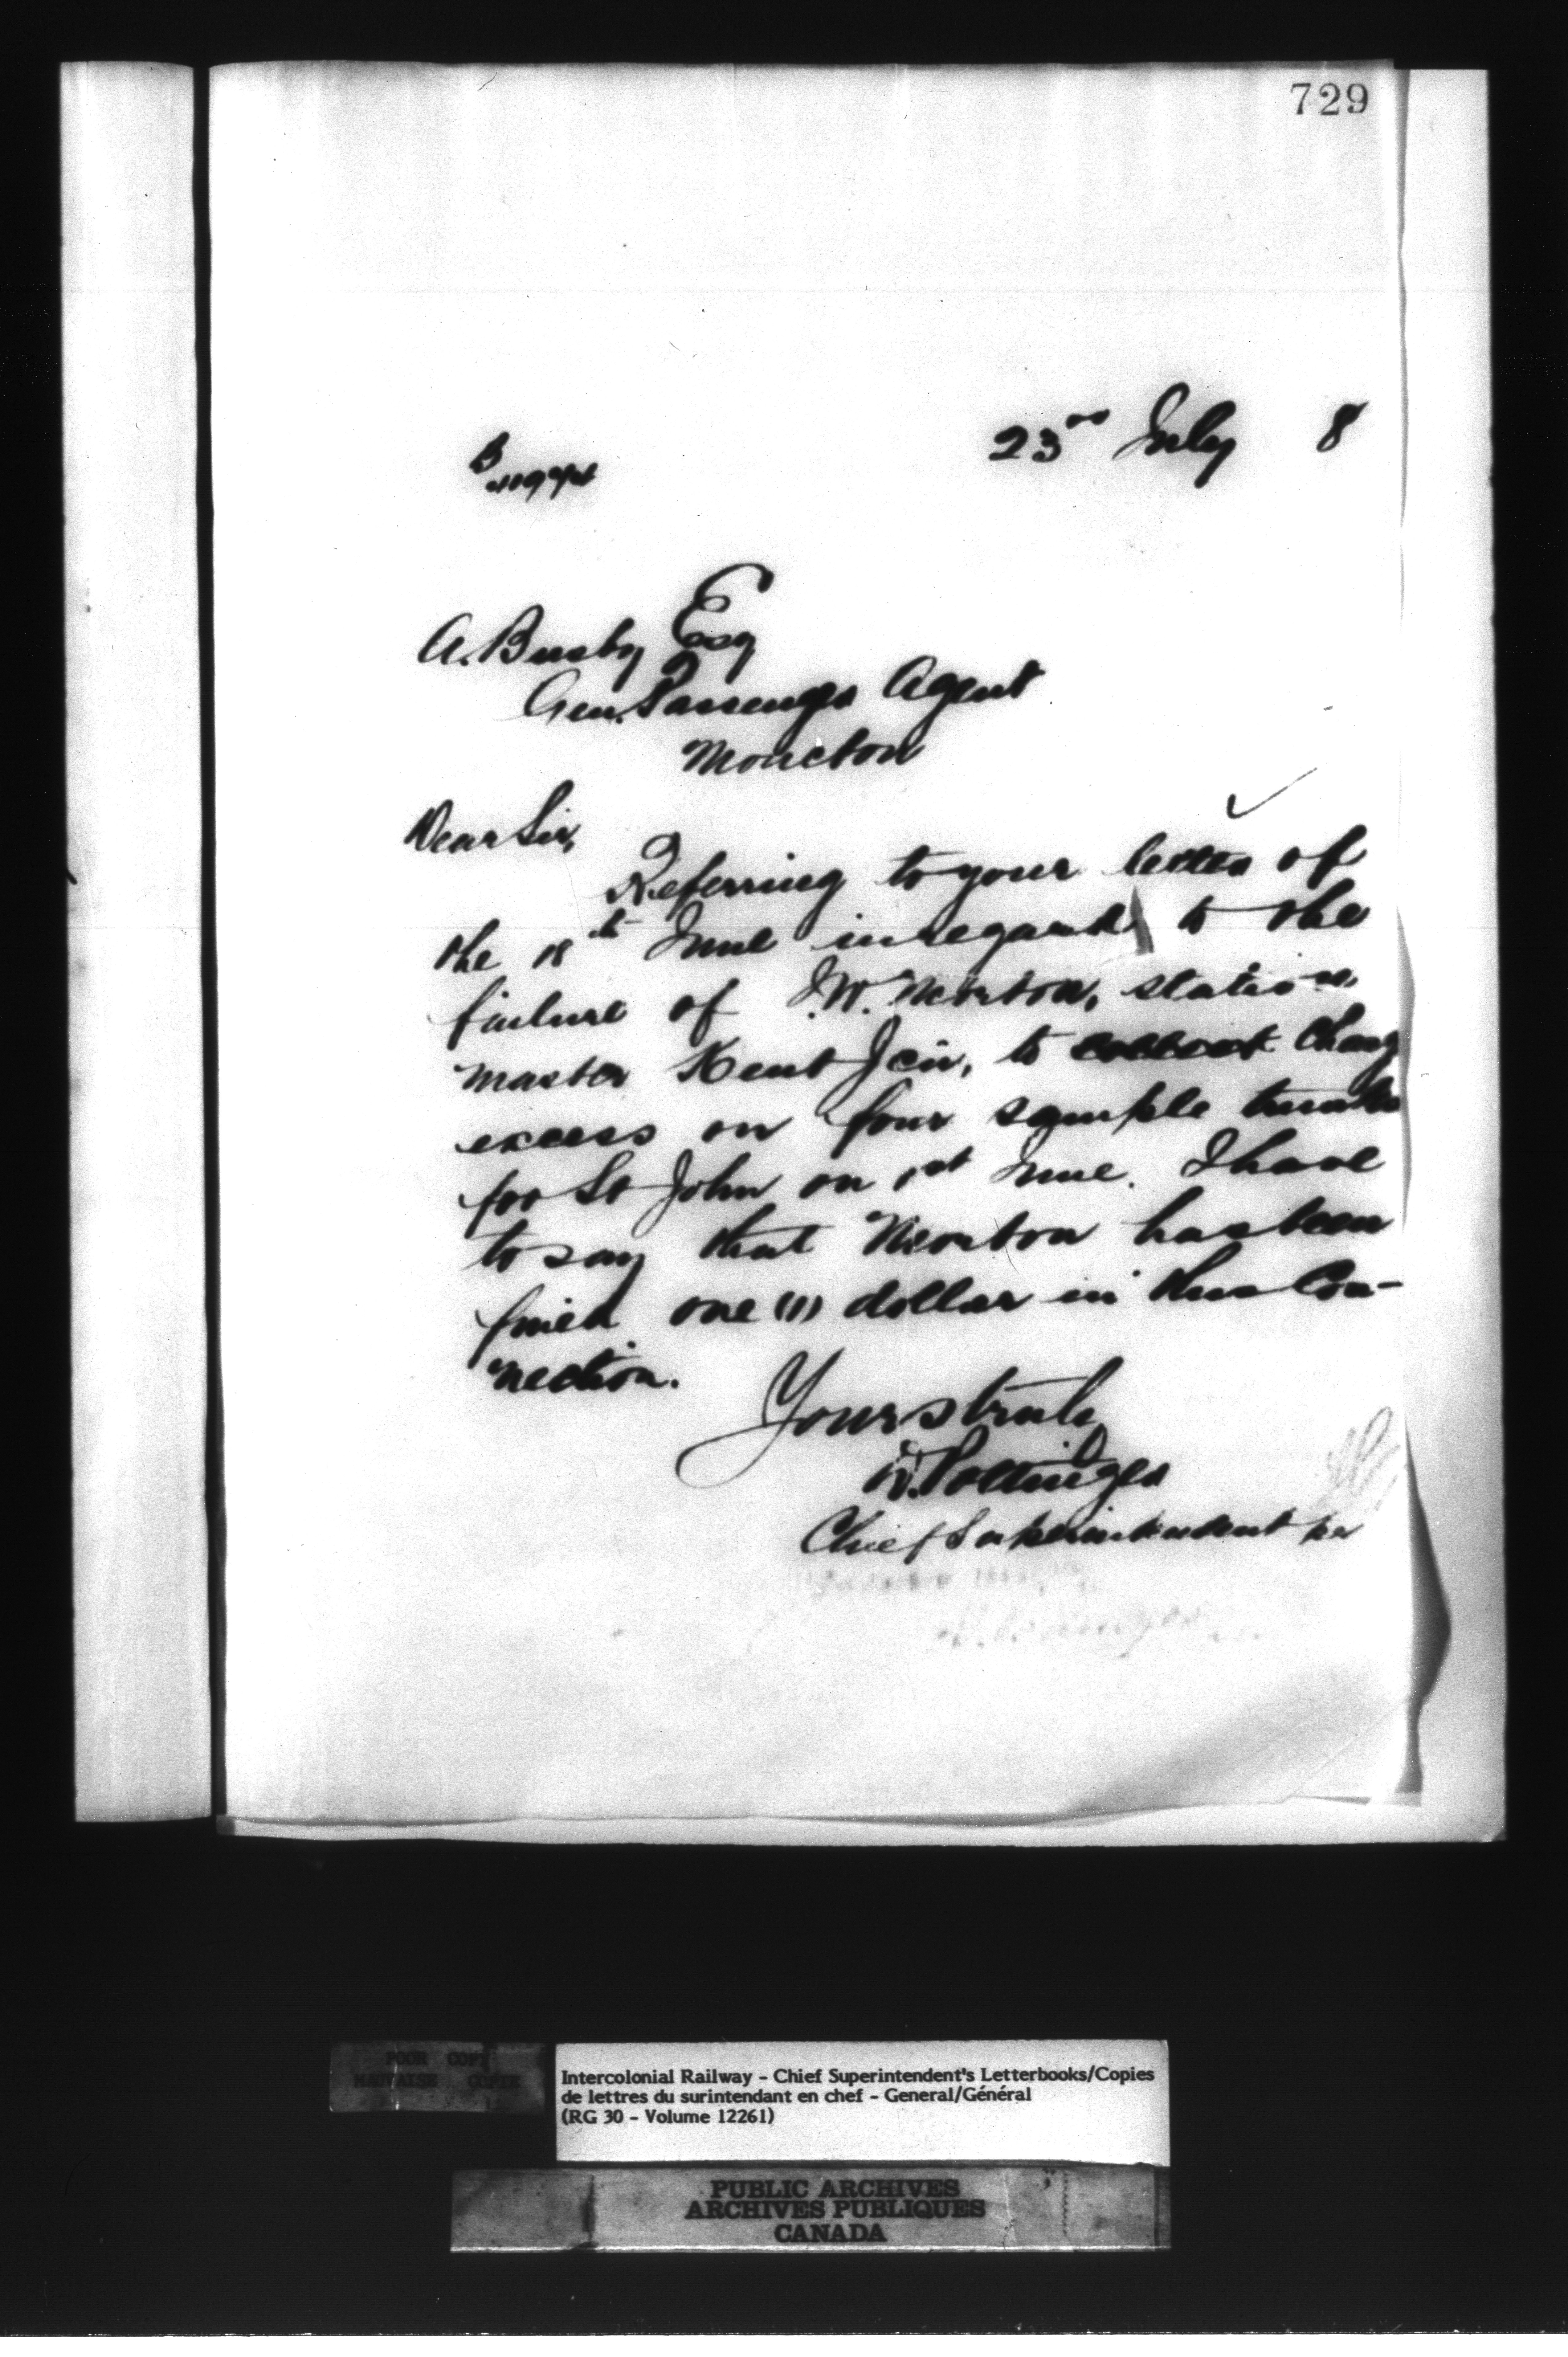 729
23rd July 8
A. Busby Esq
Gen. Passenger Agent
Moncton
Dear Sir,
Referring to your letter of
the 18th June in regard to the
failure of J.W. Newton, station
master Kent Jcn, to collect charg
excess on four sample trunks
for St John on 1st June. I have
to say that Newton has been
fined one (1) dollar in this con-
nection.
Yours truly
D. Pottinger
Chief Superintendent per
POOR COPY
MAUVAISE COPIE
Intercolonial Railway - Chief Superintendent's Letterbooks/Copies
de lettres du surintendant en chef - General/Général
(RG 30 - Volume 12261)
PUBLIC ARCHIVES
ARCHIVES PUBLIQUES
CANADA